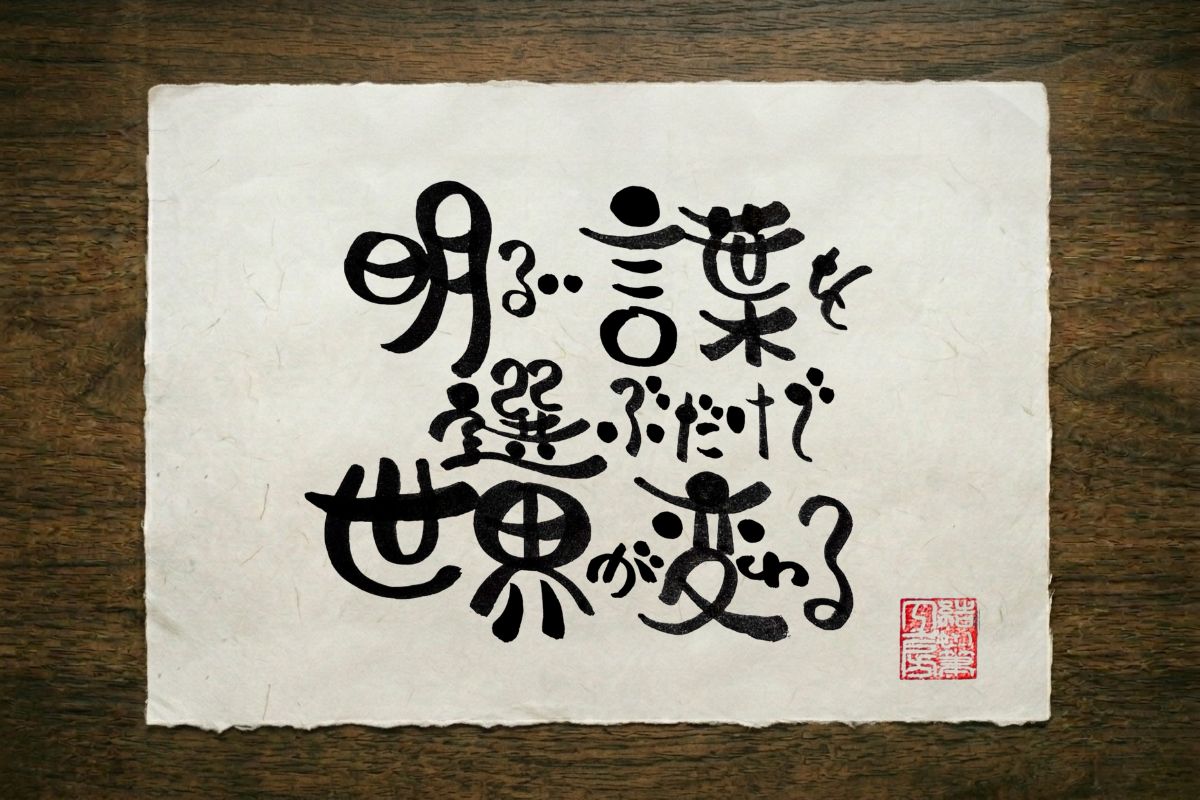 明るい言葉を
選ぶだけで
世界が変わる